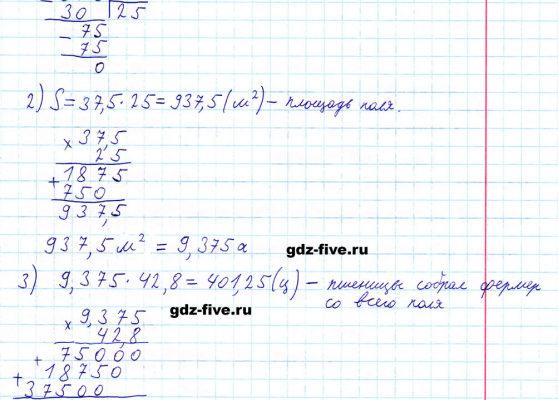 30 25
- 75
75
0
2) S = 37,5 · 25 = 937,5 (м²) – площадь поля.
× 37,5
25
+ 1875
750
937,5
937,5 м² = 9,375 а
gdz-five.ru
3) 9,375 · 42,8 = 401,25 (ц) – пшеницы собрал фермер
со всего поля
gdz-five.ru
× 9,375
42,8
+ 75000
+ 18750
37500